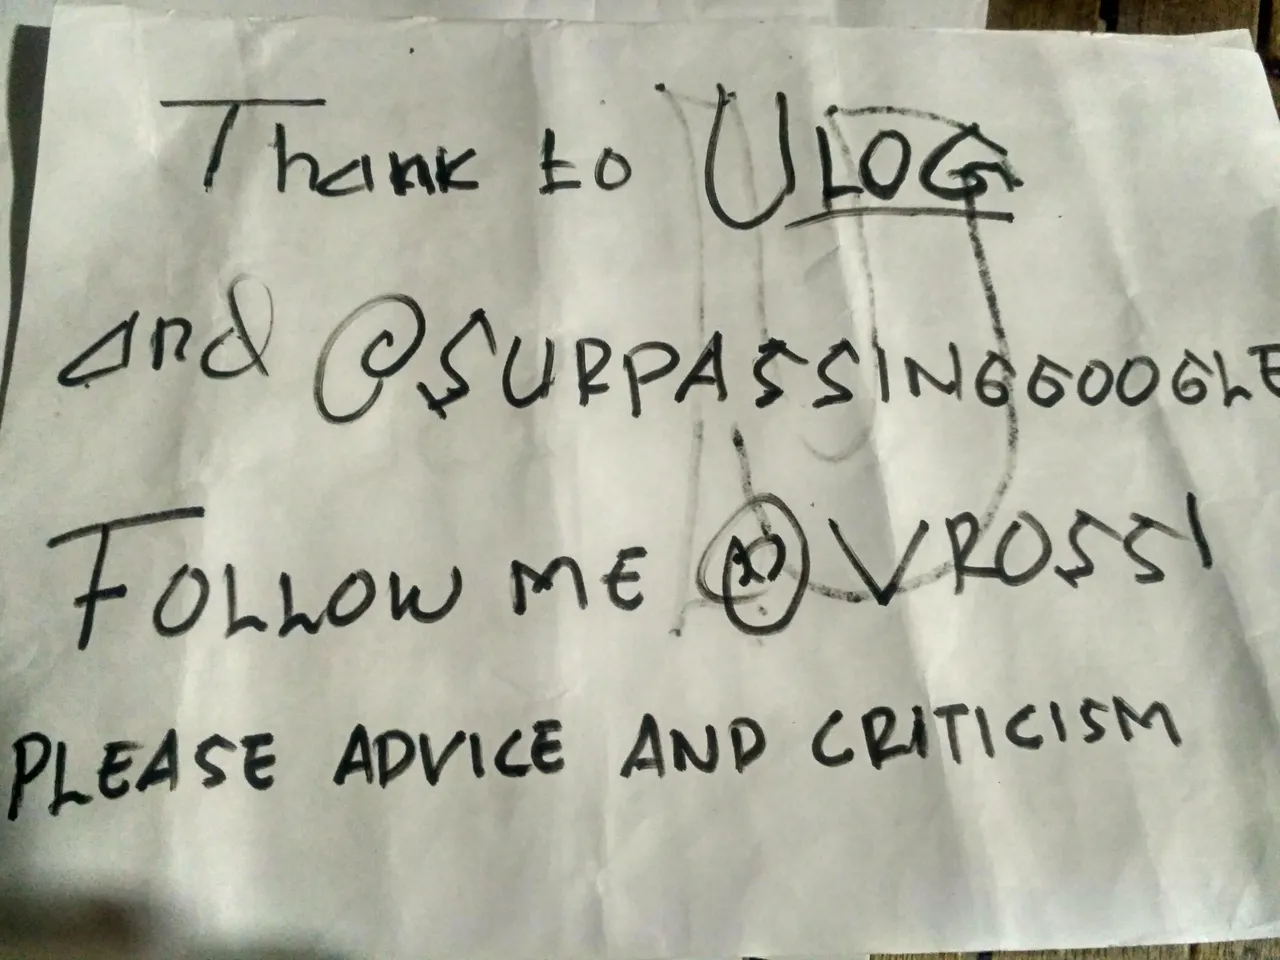 Thank to ULOG
and @SURPASSINGGOOGLE
FOLLOW ME @VROSSI
PLEASE ADVICE AND CRITICISM